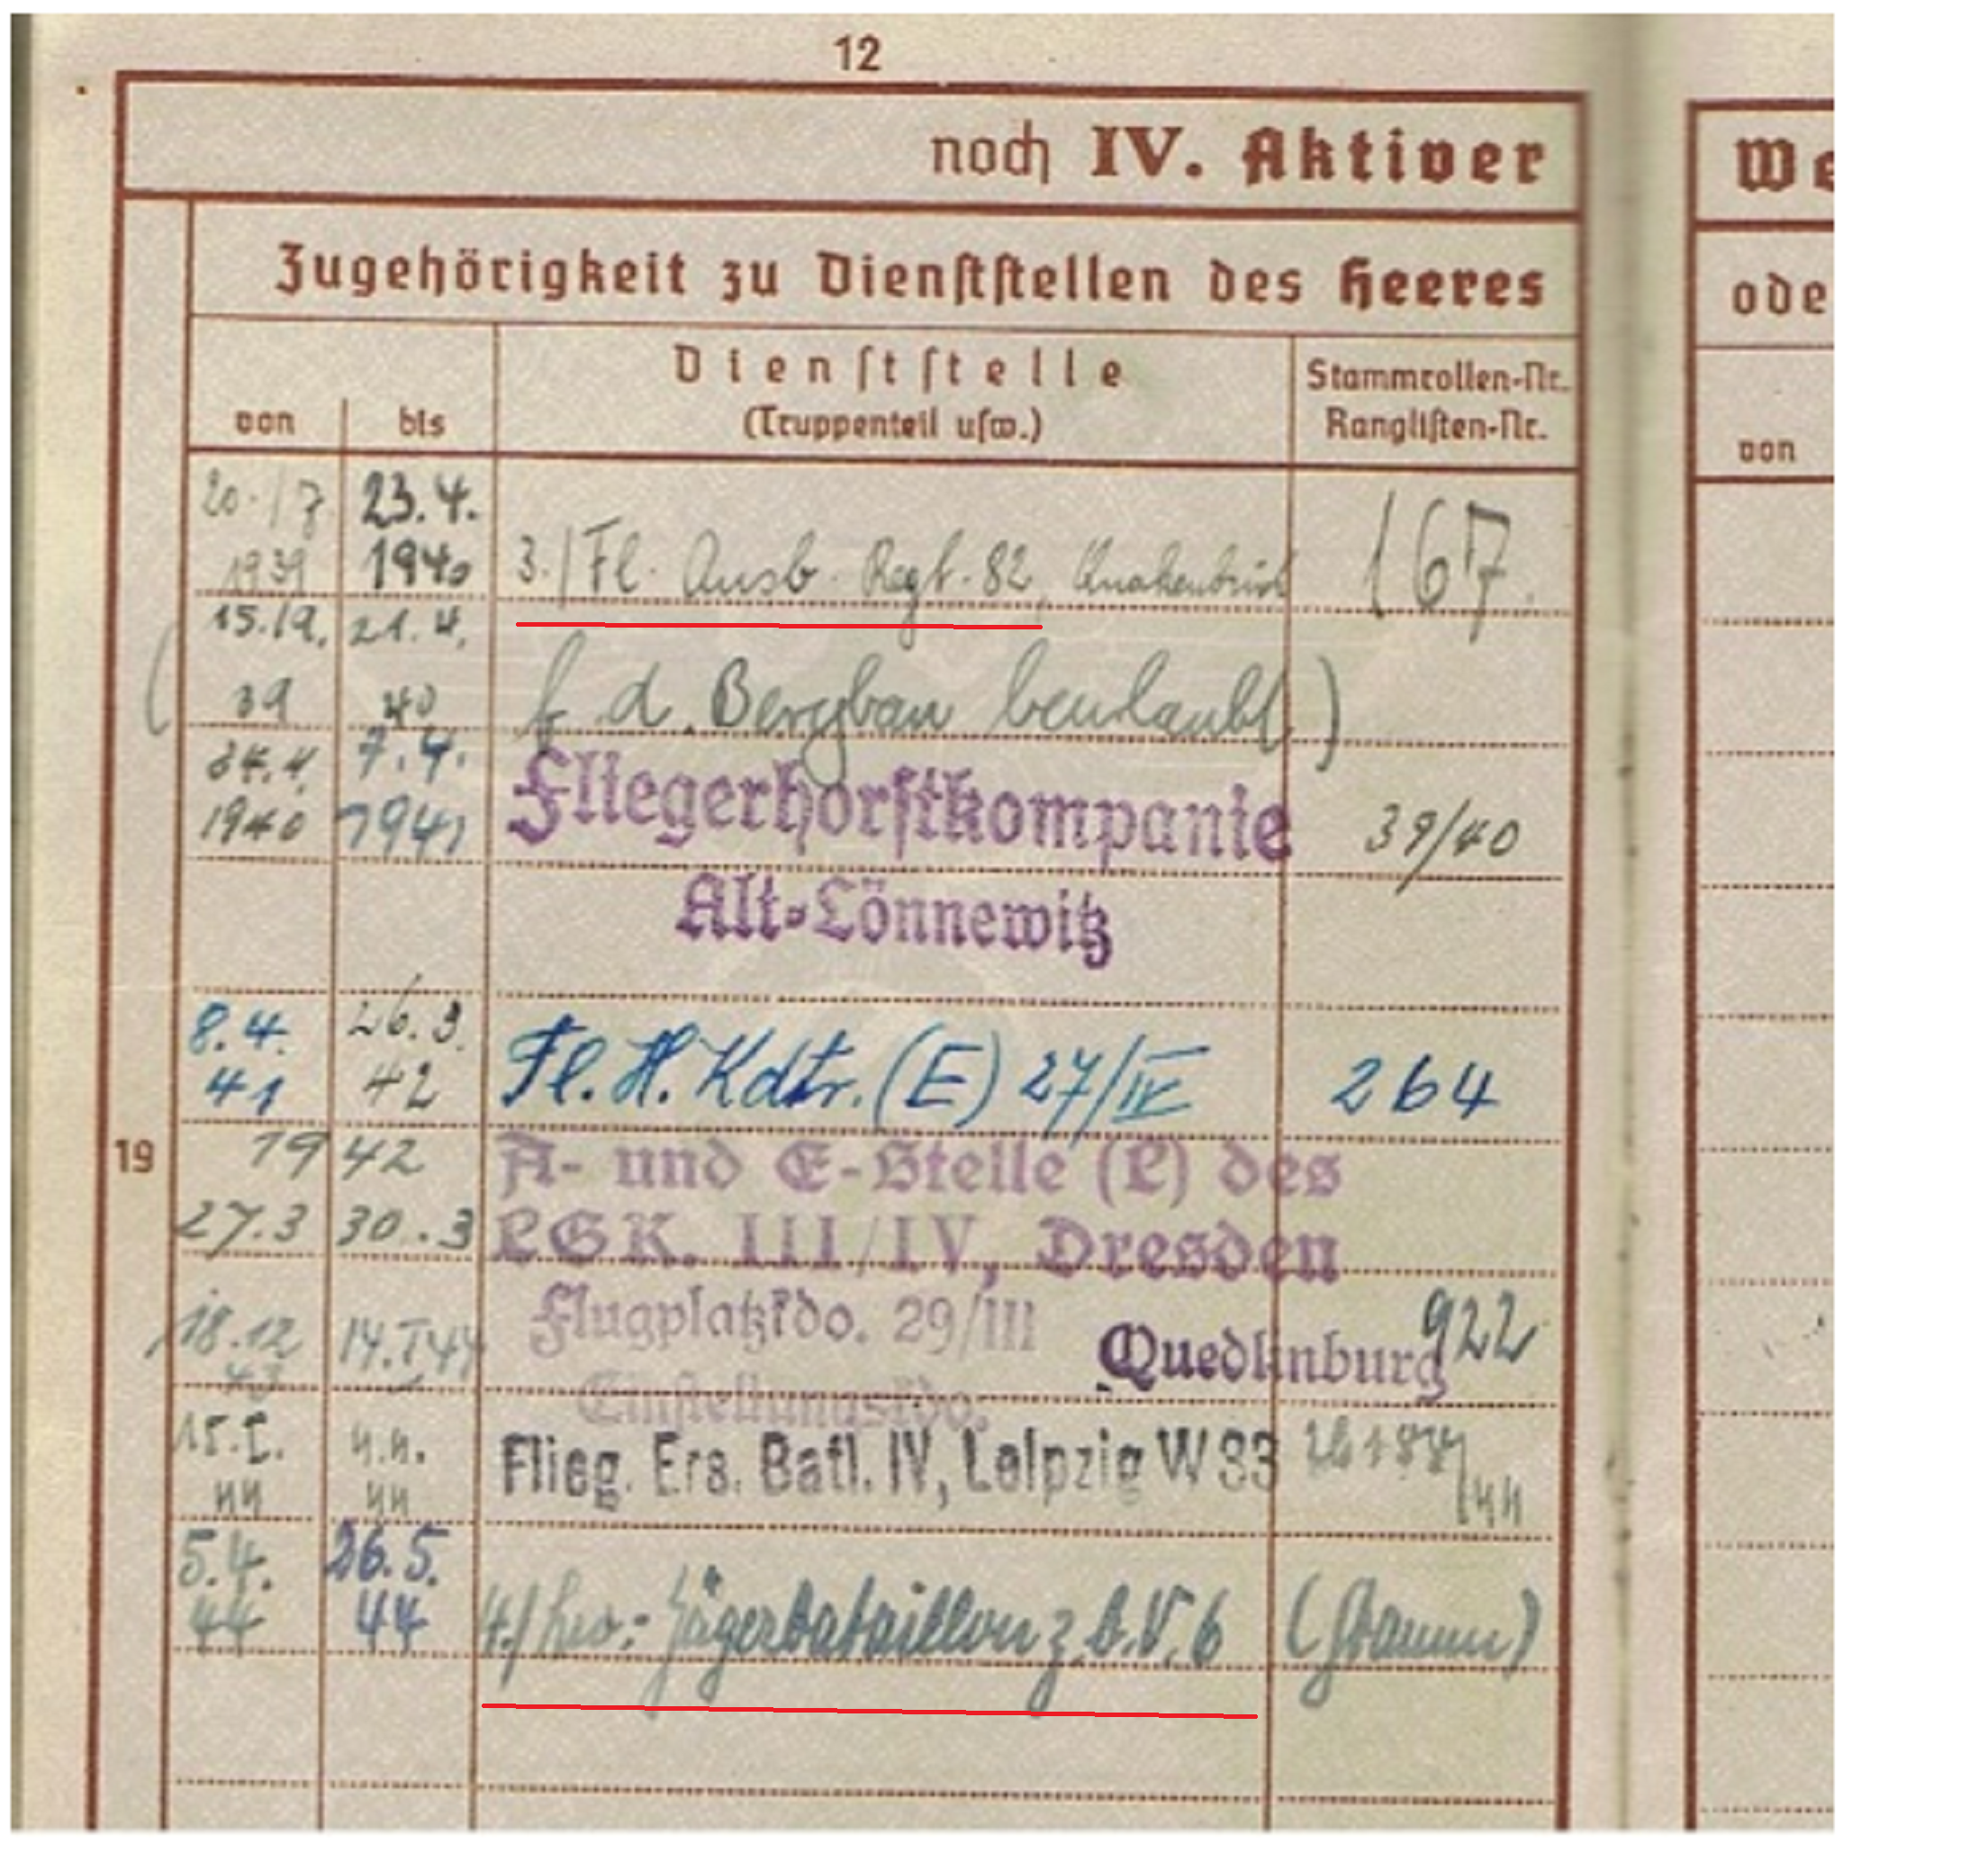 12
noch IV. Aktiver
We
Zugehörigkeit zu Dienststellen des Heeres
ode
Dienststelle
Stammrollen-Nr.
von bis (Truppenteil usw.) Ranglisten-Nr.
von
20./7. 23.4.
1939 1940 3./Fl. Ausb. Regt. 82, Quakenbrück 167.
15./9. 21.4.
( 39 40 f. d. Bergbau beurlaubt.)
24.4. 7.4.
1940 1941 Fliegerhorstkompanie 39/40
Alt-Lönnewitz
8.4. 26.3.
41 42 Fl. H. Kdtr. (E) 27/IV 264
19 19 42 A- und E-Stelle (L) des
27.3 30.3 LGK. III/IV, Dresden
18.12 14.I 44 Flugplatzkdo. 29/III Quedlinburg 922
43 Einstellungskdo.
15.I. 4.4.
44 44 Flieg. Ers. Batl. IV, Leipzig W 33
5.4. 26.5.
44 44 Jägerbataillon z.b.V. 6 (Stamm)